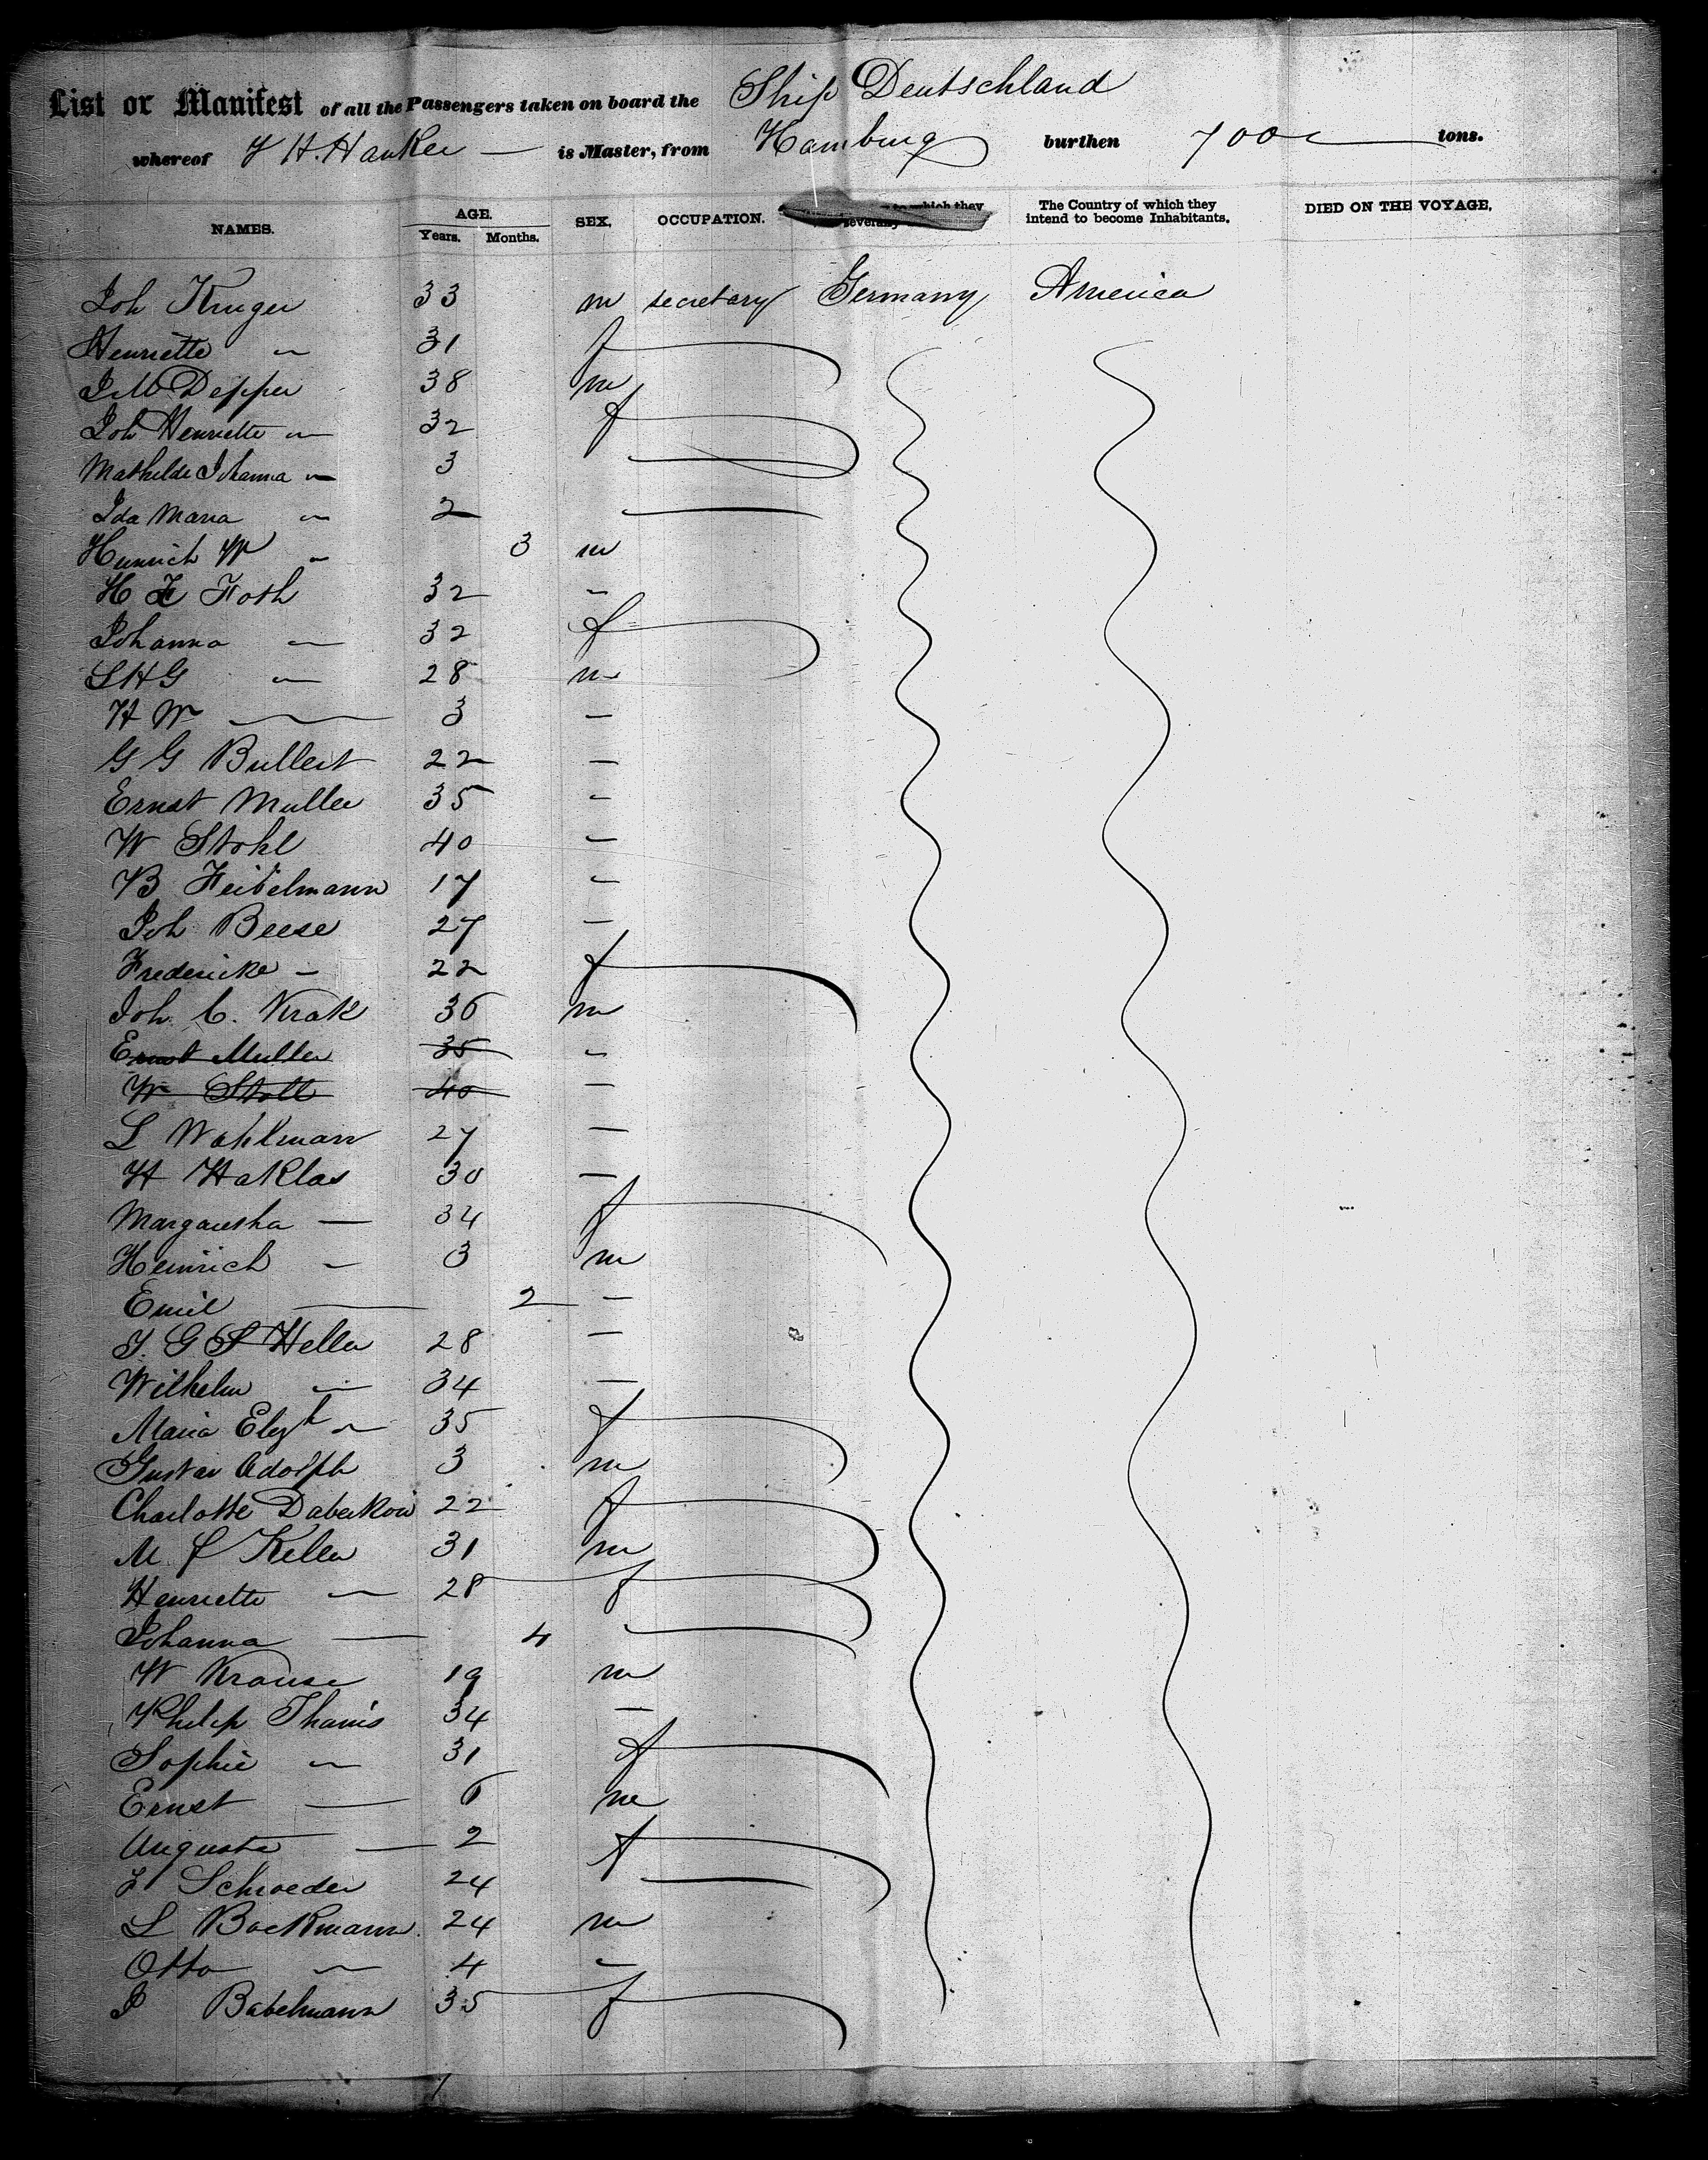 List or Manifest of all the Passengers taken on board the Ship Deutschland
whereof H. Hanker — is Master, from Hamburg burthen 700 tons.
NAMES. AGE. Years. Months. SEX. OCCUPATION. to which they severally The Country of which they intend to become Inhabitants. DIED ON THE VOYAGE.
Joh Kruger 33 m secretary Germany America
Henriette " 31 f
Depper 38 m
Joh Henriette " 32 f
Mathilde Johanna " 3
Ida Maria " 2
Heinrich W " 3 m
H F Foth 32 "
Johanna " 32 f
L H G " 28 m
H W — 3 —
G G Bullert 22 —
Ernst Muller 35 "
W Stohl 40 "
B Feibelmann 17 "
Joh Beese 27 —
Fredericke - 22 f
Joh. C. Krak 36 m
Ernst Muller 35 "
W Stoll 40 —
L Wohlmann 27 —
H Haklas 30 —
Margaretha — 34 f
Heinrich - 3 m
Emil — 2 —
J. G S Heller 28 —
Wilhelm " 34 —
Maria " 35 f
Gustav Adolph 3 m
Charlotte Daberkow 22 f
M. f Keller 31 m
Henriette " 28 f
Johanna — 4
W Krause 19 m
Philip Thanis 34 —
Sophie " 31 f
Ernst — 6 m
Auguste — 2 f
Schroeder 24
L Bockmann 24 m
Otto " 4 "
J Babelmann 35 f